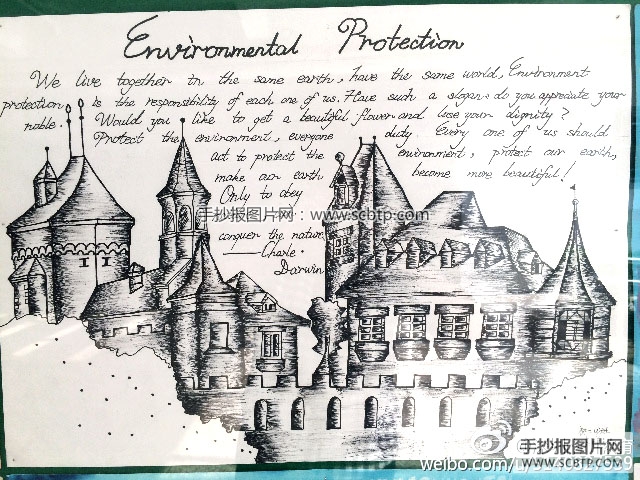 Environmental Protection
We live together in the same earth, have the same world, Environment
protection is the responsibility of each one of us. Have such a slogan: do you appreciate your
noble. Would you like to get a beautiful flower and lose your dignity?
Protect the environment, everyone duty. Every one of us should
act to protect the environment, protect our earth,
make our earth become more beautiful!
Only to obey
手抄报图片网：www.scbtp.com
conquer the nature
——Charle·
Darwin
手抄报图片网
WWW.SCBTP.COM
weibo.com/